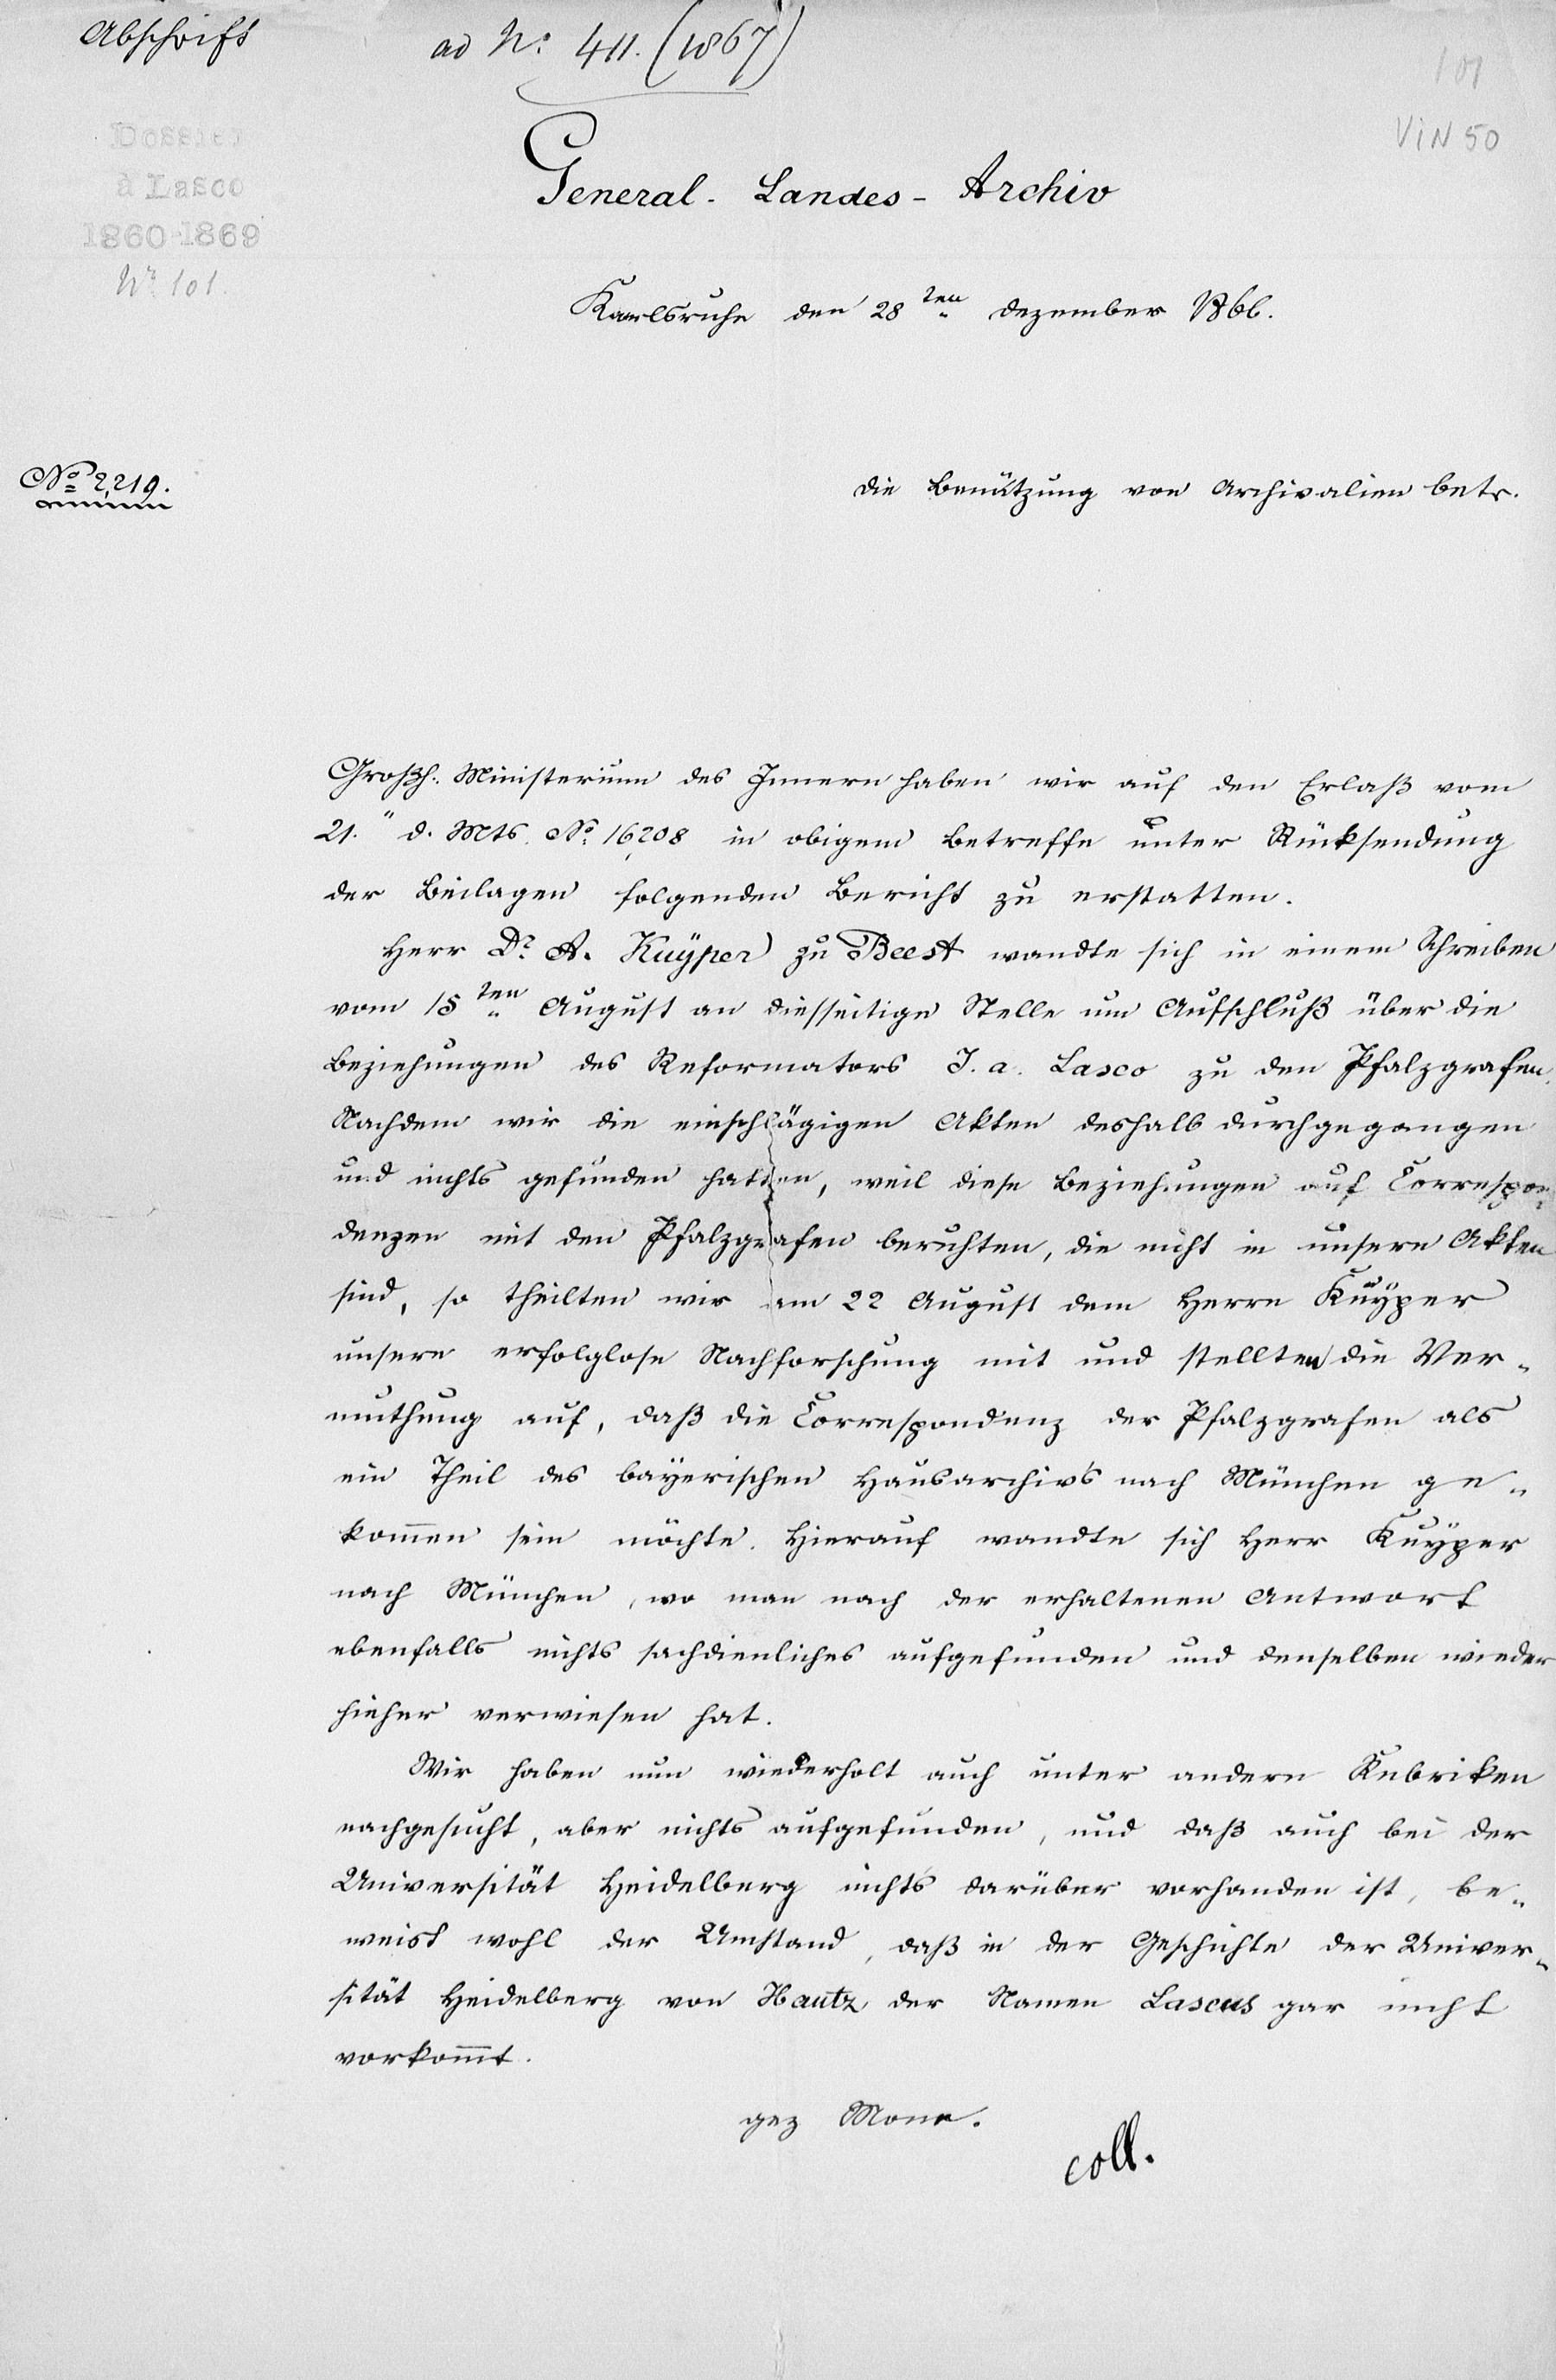 Abschrift
ad No. 411. (1867)
101
ViN 50
Dossier
à Lasco
1860-1869
No 101.
General-Landes-Archiv
Karlsruhe den 28ten Dezember 1866.
No 2,219.
die Benützung von Archivalien betr.
Großh. Ministerium des Innern haben wir auf den Erlaß vom
21." d. Mts. No. 16,208 in obigem Betreffe unter Rücksendung
der Beilagen folgenden Bericht zu erstatten.
Herr Dr. A. Kuÿper zu Beest wandte sich in einem Schreiben
vom 15ten August an diesseitige Stelle um Aufschluß über die
Beziehungen des Reformators J. a. Lasco zu den Pfalzgrafen.
Nachdem wir die einschlägigen Akten deshalb durchgegangen
und nichts gefunden hatten, weil diese Beziehungen auf Correspon-
denzen mit den Pfalzgrafen beruhten, die nicht in unsern Akten
sind, so theilten wir am 22 August dem Herrn Kuÿper
unsere erfolglose Nachforschung mit und stellten die Ver-
muthung auf, daß die Correspondenz der Pfalzgrafen als
ein Theil des baÿerischen Hausarchivs nach München ge-
kommen sein möchte. Hierauf wandte sich Herr Kuÿper
nach München, wo man nach der erhaltenen Antwort
ebenfalls nichts sachdienliches aufgefunden und denselben wieder
hieher verwiesen hat.
Wir haben nun wiederholt auch unter andern Rubriken
nachgesucht, aber nichts aufgefunden, und daß auch bei der
Universität Heidelberg nichts darüber vorhanden ist, be-
weist wohl der Umstand, daß in der Geschichte der Univer-
sität Heidelberg von Hautz der Namen Lascus gar nicht
vorkommt.
gez Mone.
coll.